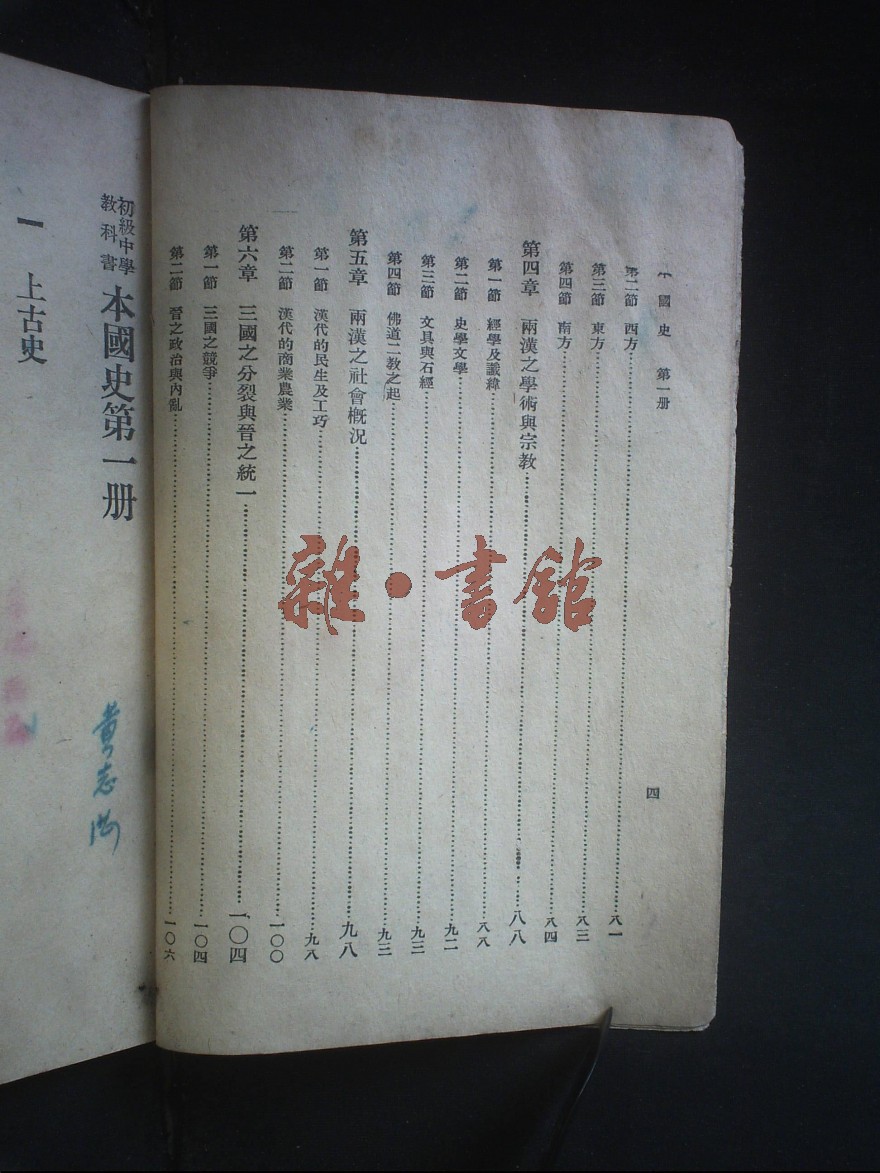 本國史 第一册
第二節 西方 八一
第三節 東方 八三
第四節 南方 八四
第四章 兩漢之學術與宗教 八八
第一節 經學及讖緯 八八
第二節 史學文學 九二
第三節 文具與石經 九三
第四節 佛道二教之起 九三
第五章 兩漢之社會概况 九八
第一節 漢代的民生及工巧 九八
第二節 漢代的商業農業 一〇〇
第六章 三國之分裂與晉之統一 一〇四
第一節 三國之競爭 一〇四
第二節 晉之政治與內亂 一〇六
四
初級中學
教科書
本國史第一册
一 上古史
黄志
雜·書館